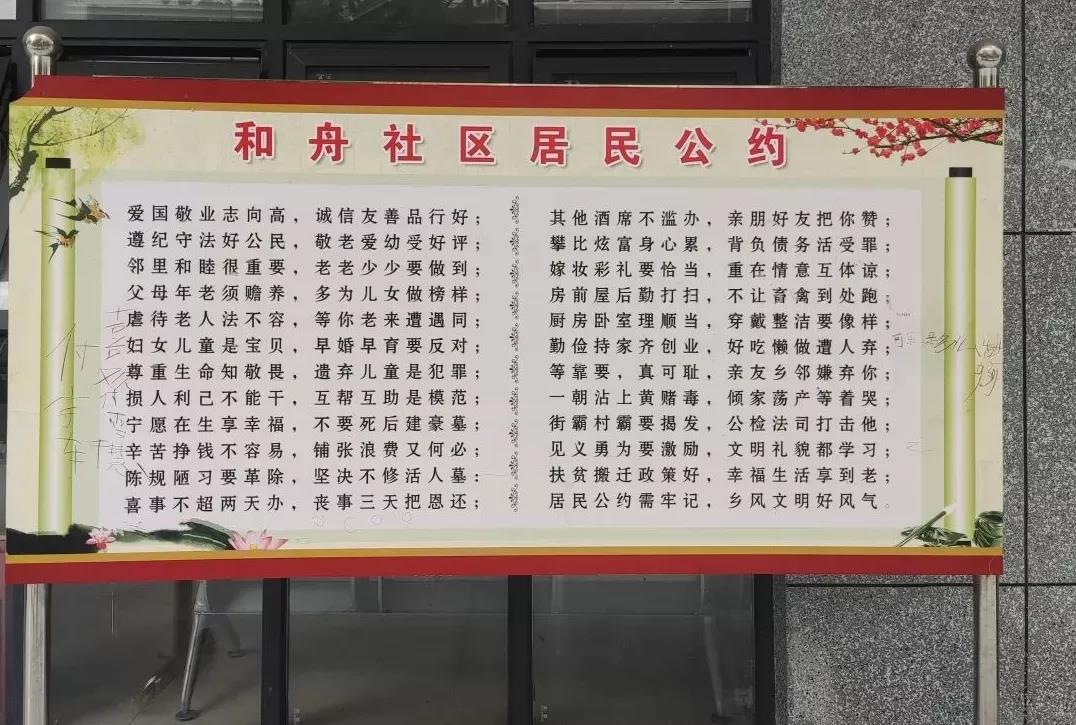 和舟社区居民公约
爱国敬业志向高，诚信友善品行好；
遵纪守法好公民，敬老爱幼受好评；
邻里和睦很重要，老老少少要做到；
父母年老须赡养，多为儿女做榜样；
虐待老人法不容，等你老来遭遇同；
妇女儿童是宝贝，早婚早育要反对；
尊重生命知敬畏，遗弃儿童是犯罪；
损人利己不能干，互帮互助是模范；
宁愿在生享幸福，不要死后建豪墓；
辛苦挣钱不容易，铺张浪费又何必；
陈规陋习要革除，坚决不修活人墓：
喜事不超两天办，丧事三天把恩还；
其他酒席不滥办，亲朋好友把你赞；
攀比炫富身心累，背负债务活受罪；
嫁妆彩礼要恰当，重在情意互体谅；
房前屋后勤打扫，不让畜禽到处跑；
厨房卧室理顺当，穿戴整洁要像样；
勤俭持家齐创业，好吃懒做遭人弃；
等靠要，真可耻，亲友乡邻嫌弃你；
一朝沾上黄赌毒，倾家荡产等着哭；
街霸村霸要揭发，公检法司打击他；
见义勇为要激励，文明礼貌都学习；
扶贫搬迁政策好，幸福生活享到老；
居民公约需牢记，乡风文明好风气。